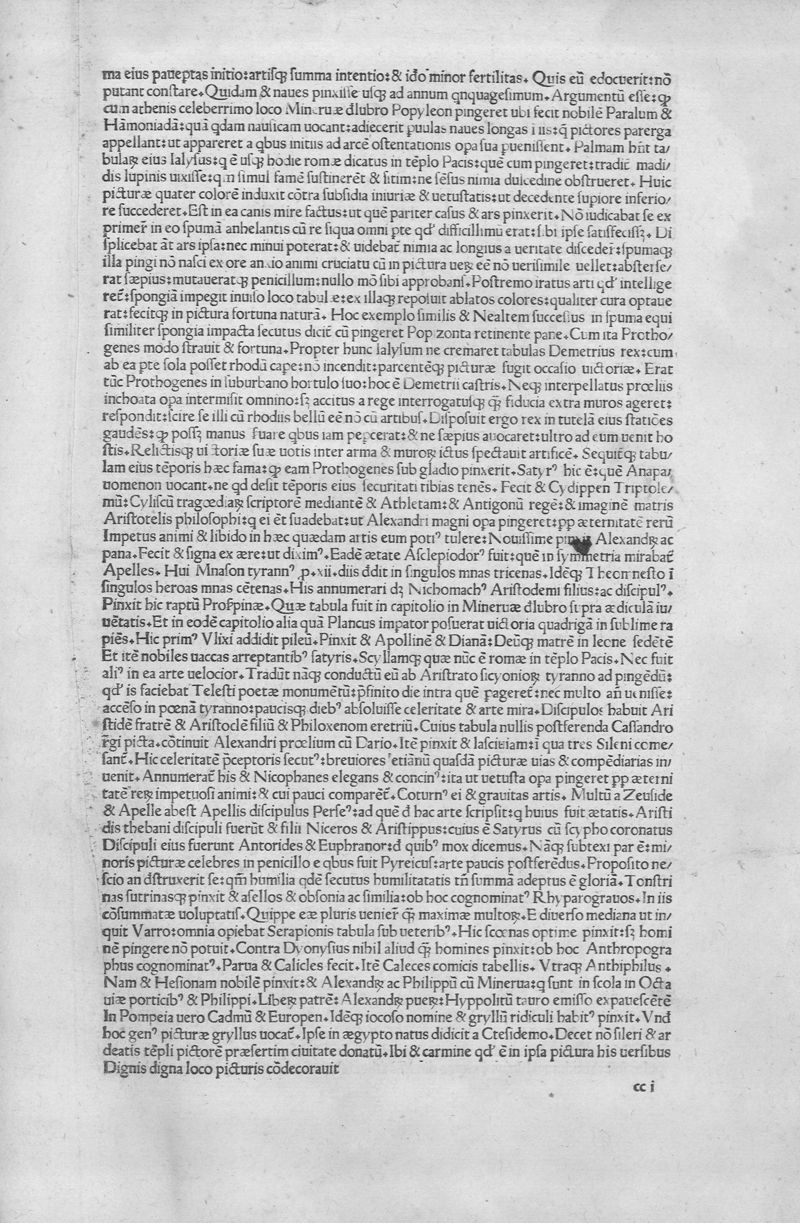 ma eius paueptas initio:artisqȝ summa intentio:& ido minor fertilitas. Quis eū edocuerit:nō
putant constare. Quidam & naues pinxisse usqȝ ad annum qnquagesimum. Argumentū esse:ꝙ
cum athenis celeberrimo loco Mineruæ dlubro Popyleon pingeret ubi fecit nobilē Paralum &
Hāmoniadā:quā qdam nausicam uocant:adiecerit puulas naues longas iiis:q̄ pictores parerga
appellant:ut appareret a qbus initiis ad arcē ostentationis opa sua puenissent. Palmam hn̄t ta/
bulaꝝ eius Ialysus:q ē usqȝ hodie romæ dicatus in tēplo Pacis:quē cum pingeret:tradit̄ madi/
dis lupinis uixisse:qm simul famē sustinerēt & sitim:ne sēsus nimia dulcedine obstrueret. Huic
picturæ quater colorē induxit cōtra subsidia iniuriæ & uetustatis:ut decedente supiore inferio/
re succederet. Est in ea canis mire factus:ut quē pariter casus & ars pinxerit. Nō iudicabat se ex
primer̄ in eo spumā anhelantis cū re siqua omni pte qd' difficillimū erat:sibi ipse satiffecissȝ. Di
splicebat āt ars ipsa:nec minui poterat:& uidebat̄ nimia ac longius a ueritate discedere:spumaqȝ
illa pingi nō nasci ex ore anxio animi cruciatu cū in pictura ueꝝ eē nō uerisimile uellet:absterse/
rat sæpius:mutaueratqȝ penicillum:nullo mō sibi approbans. Postremo iratus arti qd' intellige
ret̄:spongiā impegit inuiso loco tabulæ:ex illaqȝ reposuit ablatos colores:qualiter cura optaue
rat:fecitqȝ in pictura fortuna naturā. Hoc exemplo similis & Nealtem successus in spuma equi
similiter spongia impacta secutus dicit̄ cū pingeret Popizonta retinente pane. Cum ita Protho/
genes modo strauit & fortuna. Propter hunc Ialysum ne cremaret tabulas Demetrius rex:cum
ab ea pte sola posset rhodū cape:nō incendit:parcentēqȝ picturæ fugit occasio uictoriæ. Erat
tūc Prothogenes in suburbano hortulo suo:hoc ē Demetrii castris. Neqȝ interpellatus prœliis
inchoata opa intermisit omnino:sȝ accitus a rege interrogatusqȝ qȝ fiducia extra muros ageret:
respondit:scire se illi cū rhodiis bellū eē nō cū artibus. Disposuit ergo rex in tutelā eius statiōes
gaudēs:ꝙ possȝ manus suare qbus iam pepcerat:& ne sæpius auocaret:ultro ad eum uenit ho
stis. Relictisqȝ uictoriæ suæ uotis inter arma & muroꝝ ictus spectauit artificē. Sequit̄qȝ tabu/
lam eius tēporis hæc fama:ꝙ eam Prothogenes sub gladio pinxerit. Satyr⁹ hic ē:quē Anapa/
uomenon uocant. ne qd desit tēporis eius securitati tibias tenēs. Fecit & Cydippen Triptole/
mū:Cyliscū tragœdiaꝝ scriptorē mediantē & Athletam:& Antigonū regē:& imaginē matris
Aristotelis philosophi:q ei ēt suadebat:ut Alexandri magni opa pingeret:pp æternitatē rerū
Impetus animi & libido in hæc quædam artis eum poti⁹ tulere:Nouissime pinxit Alexandꝝ ac
pana. Fecit & signa ex ære:ut dixim⁹. Eadē ætate Asclepiodor⁹ fuit:quē in symmetria mirabat̄
Apelles. Hui Mnason tyrann⁹ p. xii. diis ddit in singulos mnas tricenas. Idēqȝ Theomnesto ī
singulos heroas mnas cētenas. His annumerari dȝ Nichomach⁹ Aristodemi filius:ac discipul⁹.
Pinxit hic raptū Prospinæ. Quæ tabula fuit in capitolio in Mineruæ dlubro supra ædiculā iu/
uētatis. Et in eodē capitolio alia quā Plancus impator posuerat uictoria quadrigā in sublime ra
piēs. Hic prim⁹ Vlixi addidit pileū. Pinxit & Apollinē & Dianā:Deūqȝ matrē in leone sedētē
Et itē nobiles uaccas arreptantib⁹ satyris. Scyllamqȝ quæ nūc ē romæ in tēplo Pacis. Nec fuit
ali⁹ in ea arte uelocior. Tradūt nāqȝ conductū eū ab Aristrato sicyonioꝝ tyranno ad pingēdū:
qd' is faciebat Telesti poetæ monumētū:p̄finito die intra quē pageret̄:nec multo an̄ uenisse:
accēso in pœnā tyranno:paucisqȝ dieb⁹ absoluisse celeritate & arte mira. Discipulos habuit Ari
stidē fratrē & Aristoclē filiū & Philoxenom eretriū. Cuius tabula nullis postferenda Cassandro
rḡi picta. cōtinuit Alexandri prœlium cū Dario. Itē pinxit & lasciuiam:ī qua tres Sileni come/
sant̄. Hic celeritatē p̄ceptoris secut⁹:breuiores etiānū quasdā picturæ uias & compēdiarias in/
uenit. Annumerat̄ his & Nicophanes elegans & concin⁹:ita ut uetusta opa pingeret pp æterni
tatē reꝝ impetuosi animi:& cui pauci comparēt̄. Coturn⁹ ei & grauitas artis. Multū a Zeuside
& Apelle abest Apellis discipulus Perse⁹:ad quē d hac arte scripsit:q huius fuit ætatis. Aristi
dis thebani discipuli fuerūt & filii Niceros & Aristippus:cuius ē Satyrus cū scypho coronatus
Discipuli eius fuerunt Antorides & Euphranor:d quib⁹ mox dicemus. Nāqȝ subtexi par ē:mi/
noris picturæ celebres in penicillo e qbus fuit Pyreicus:arte paucis postferēdus. Proposito ne/
scio an dstruxerit se:qm̄ humilia qdē secutus humilitatatis tn̄ summā adeptus ē gloriā. Tonstri
nas sutrinasqȝ pinxit & asellos & obsonia ac similia:ob hoc cognominat⁹ Rhyparograuos. In iis
cōsummatæ uoluptatis. Quippe eæ pluris uenier̄ qȝ maximæ multoꝝ. E diuerso mediana ut in/
quit Varro:omnia opiebat Serapionis tabula sub ueterib⁹. Hic scœnas optime pinxit:sȝ homi
nē pingere nō potuit. Contra Dyonysius nihil aliud qȝ homines pinxit:ob hoc Anthropogra
phus cognominat⁹. Parua & Calicles fecit. Itē Caleces comicis tabellis. Vtraqȝ Anthiphilus.
Nam & Hesionam nobilē pinxit:& Alexandꝝ ac Philippū cū Minerua:q sunt in scola in Octa
uiæ porticib⁹ & Philippi. Libeꝝ patrē: Alexandꝝ pueꝝ:Hyppolitū tauro emisso expauescētē
In Pompeia uero Cadmū & Europen. Idēqȝ iocoso nomine & gryllū ridiculi habit⁹ pinxit. Vnd
hoc gen⁹ picturæ gryllus uocat̄. Ipse in ægypto natus didicit a Ctesidemo. Decet nō sileri & ar
deatis tēpli pictorē præsertim ciuitate donatū. Ibi & carmine qd' ē in ipsa pictura his uersibus
Dignis digna loco picturis cōdecorauit
cc i